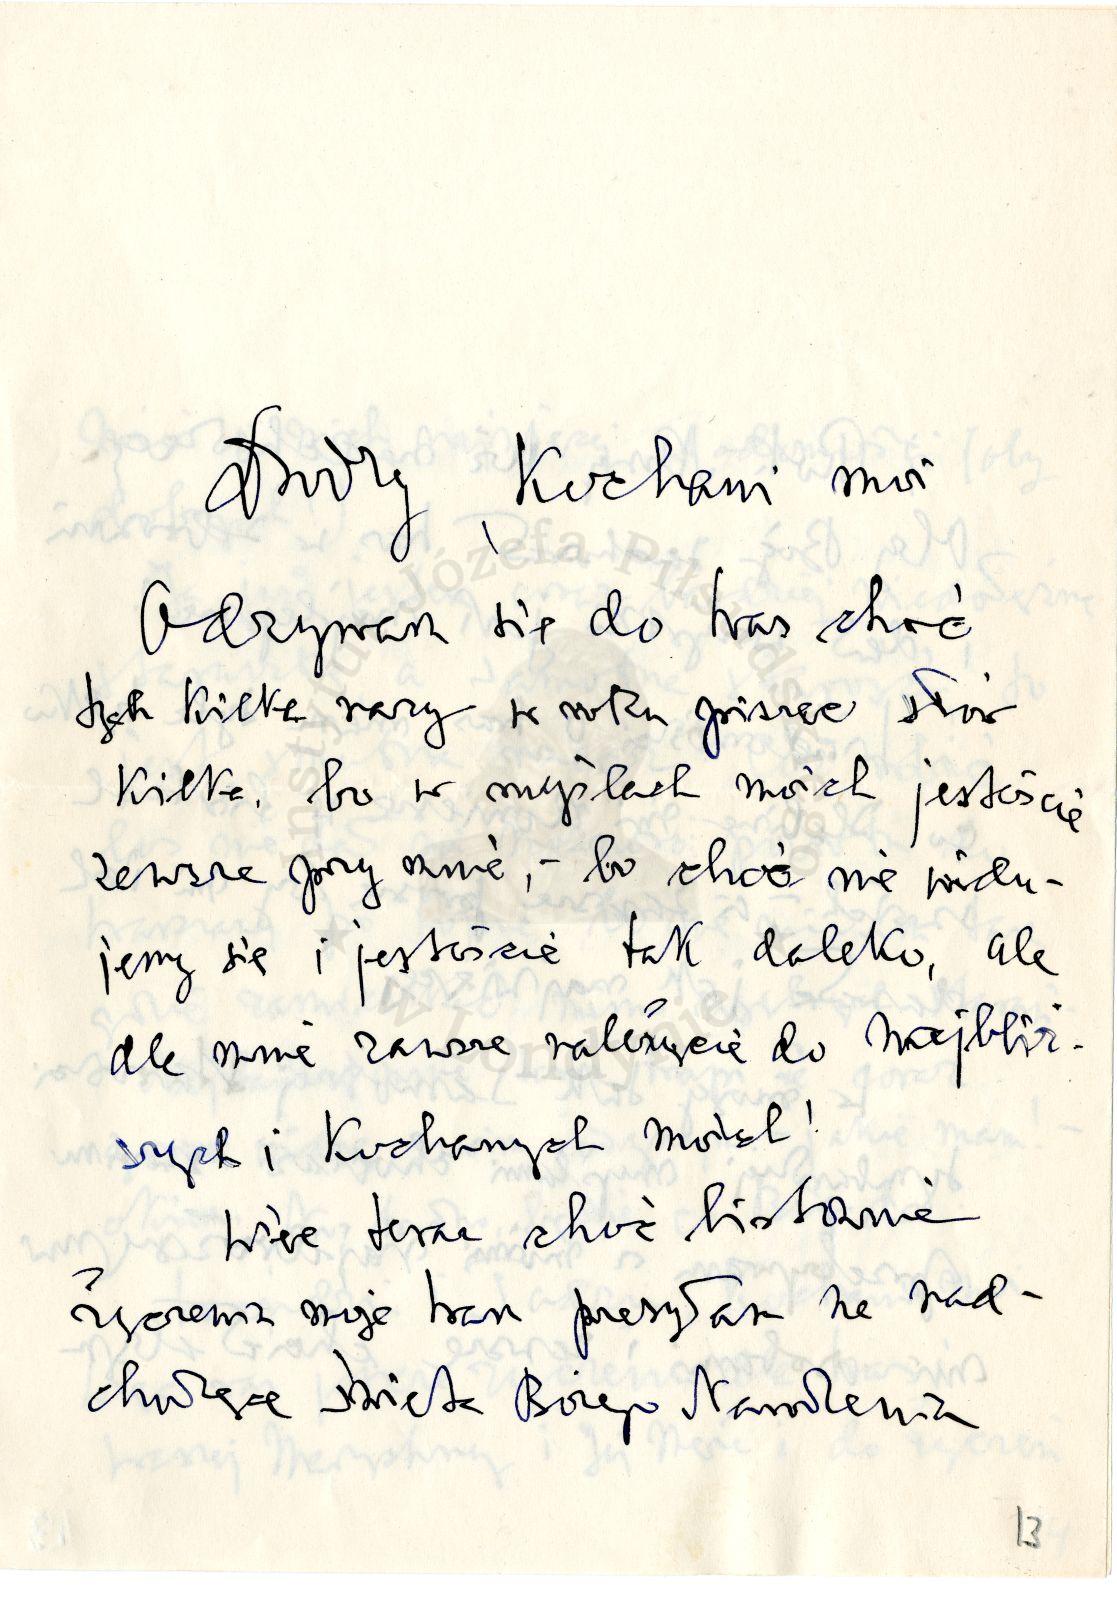 Drodzy, Kochani moi
Odzywam się do Was choć
tych kilka razy w roku pisząc słów
kilka, bo w myślach moich jesteście
zawsze przy mnie, - bo choć nie widu-
jemy się i jesteście tak daleko, ale
dla mnie zawsze należycie do najbliż-
szych i Kochanych moich!
Więc teraz choć listownie
życzenia moje Wam przesyłam na nad-
chodzące Święta Bożego Narodzenia
13
Instytut Józefa Piłsudskiego
w Londynie